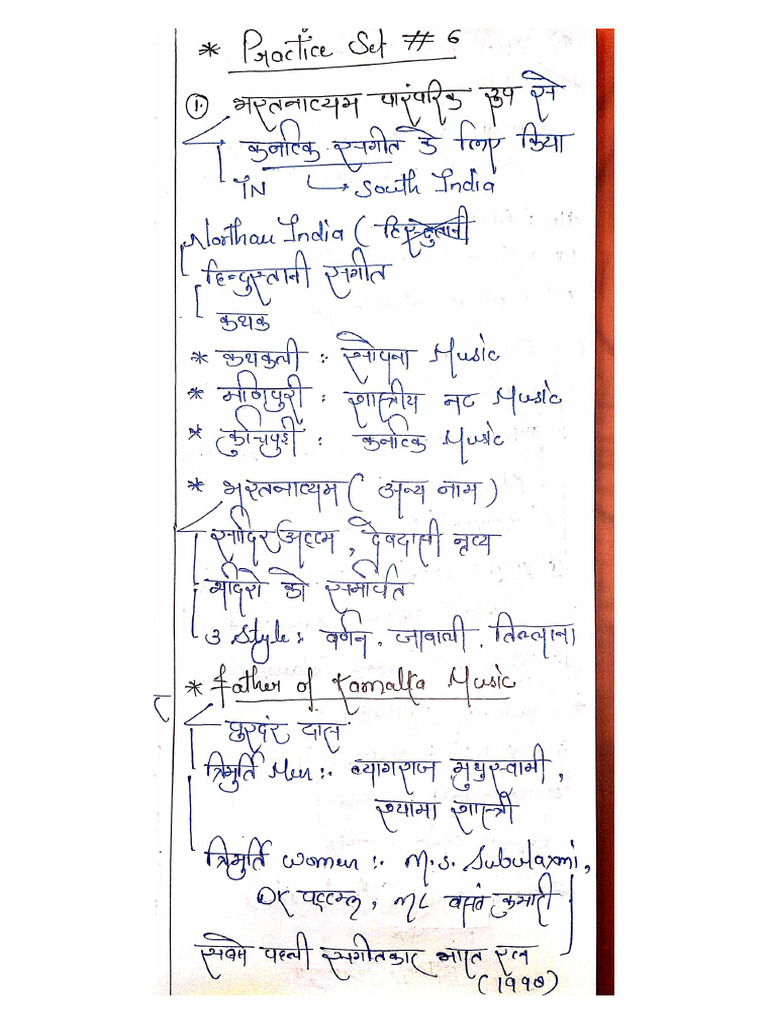 * Practice Set # 6
① भरतनाट्यम पारंपरिक रूप से
कर्नाटक संगीत के लिए किया
TN ↳ South India
Northan India ( हिन्दुस्तानी
हिन्दुस्तानी संगीत
कथक
* कथकली : सोपना Music
* मणिपुरी : शास्त्रीय नट Music
* कुचिपुड़ी : कर्नाटक Music
* भरतनाट्यम ( अन्य नाम )
सादिर अट्टम , देवदासी नृत्य
मंदिरो को समर्पित
3 Style : वर्णन , जावाली , तिल्लाना
* father of Karnatka Music
पुरंदर दास
त्रिमुर्ति Men :- त्यागराज मुथुस्वामी ,
श्यामा शास्त्री
त्रिमुर्ति women :- M.S. Subulaxmi ,
DK पट्टमल , ML वसंत कुमारी
सबसे पहली संगीतकार भारत रत्न
(1998)